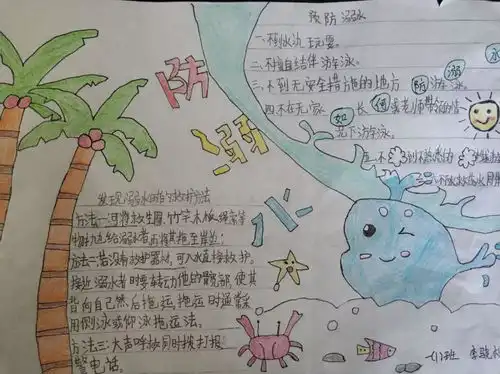 预防溺水
一、不到水氿玩耍。
二、不擅自结伴游泳。
三、不到无安全措施的地方
游泳。
四、不在无家长
老师带领的情
况下游泳。
防
溺
水
如
何
防
溺
水
发现溺水时的救护方法
方法一:可将救生圈、竹竿、木板
物抛给溺水者,再将其拖至岸边;
方法二:若没有救护器材,可入水直接救护。
接近溺水者时要转动他的髋部,使其
背向自己然后拖运。拖运时通常采
用侧泳或仰泳拖运法。
方法三:大声呼救同时拨打报
警电话。
班